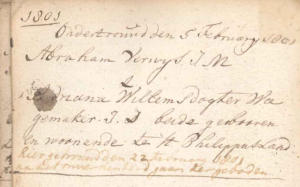 1801
Ondertrouwd den 5 February 1801
Abraham Verwys J. M
&
Adriana Willemsdogter Wa
gemaker J. D beide gebooren
en woonende te St Philippusland
hier getrouwd den 22 February 1801
na het voorhenen jaar geboden